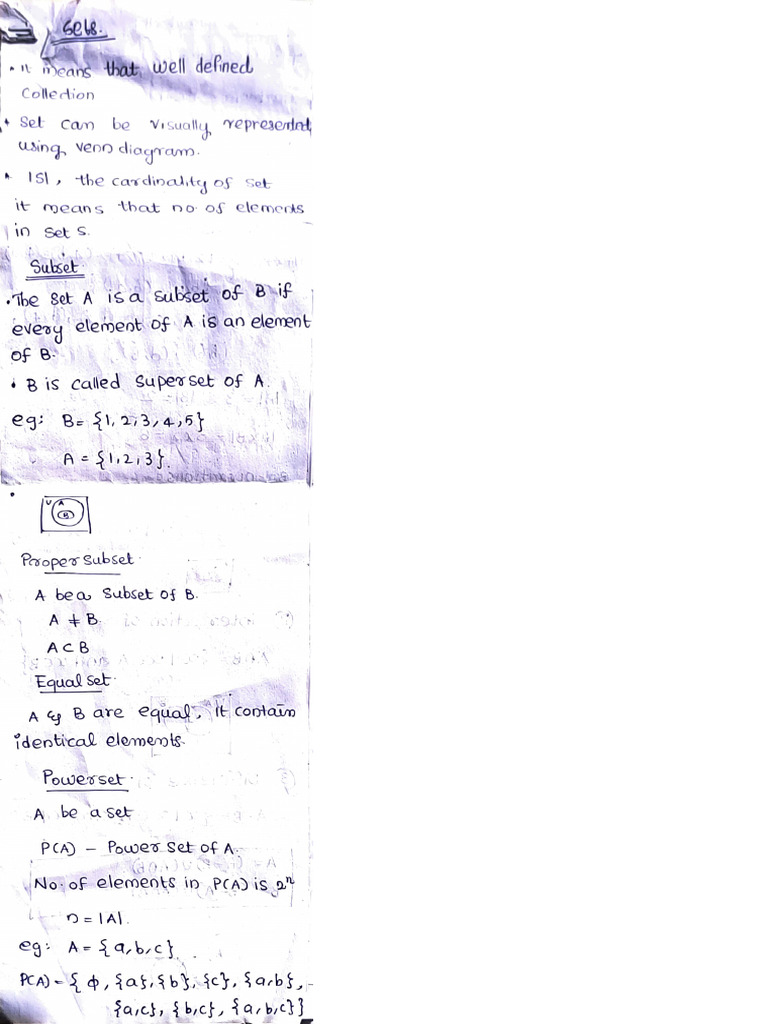 Sets.
• It means that well defined
Collection
• Set can be visually represented
using venn diagram.
• |S|, the cardinality of set
it means that no. of elements
in set S.
Subset
• The set A is a subset of B if
every element of A is an element
of B.
• B is called superset of A.
eg: B = {1, 2, 3, 4, 5}
A = {1, 2, 3}.
U A
B
Proper subset.
A be a subset of B.
A ≠ B.
A ⊂ B
Equal set.
A & B are equal, it contain
identical elements.
Power set.
A be a set
P(A) – Power set of A.
No. of elements in P(A) is 2ⁿ
n = |A|.
eg: A = {a, b, c}
P(A) = { ϕ, {a}, {b}, {c}, {a, b},
{a, c}, {b, c}, {a, b, c}}